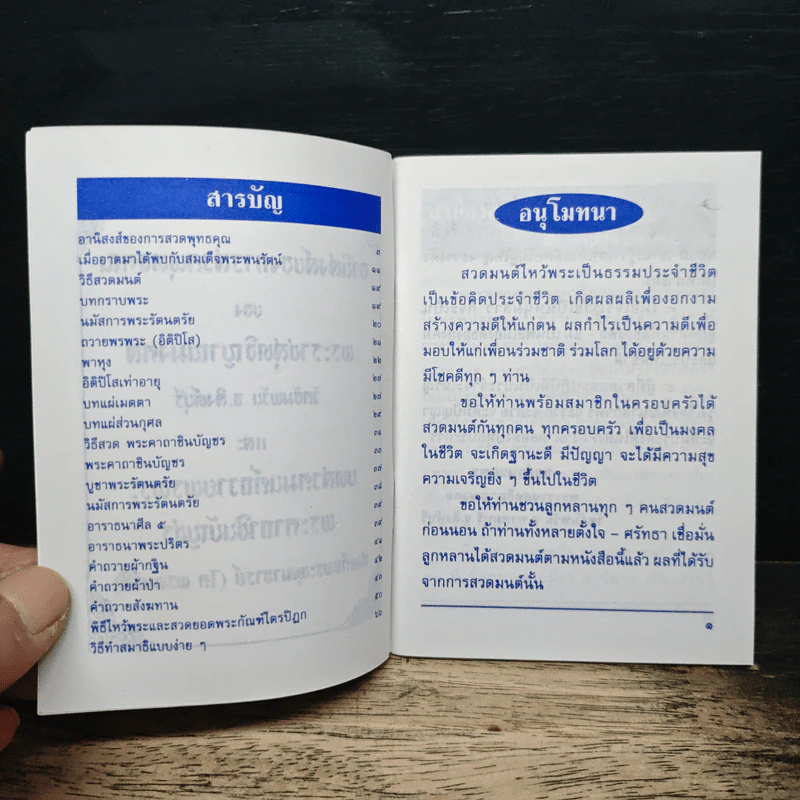 สารบัญ
อานิสงส์ของการสวดพุทธคุณ ๓
เมื่ออาตมาได้พบกับสมเด็จพระพนรัตน์ ๑๑
วิธีสวดมนต์ ๑๙
บทกราบพระ ๑๙
นมัสการพระรัตนตรัย ๒๐
ถวายพรพระ (อิติปิโส) ๒๑
พาหุง ๒๒
อิติปิโสเท่าอายุ ๒๗
บทแผ่เมตตา ๒๘
บทแผ่ส่วนกุศล ๒๙
วิธีสวด พระคาถาชินบัญชร ๓๑
พระคาถาชินบัญชร ๓๒
บูชาพระรัตนตรัย ๓๗
นมัสการพระรัตนตรัย ๓๘
อาราธนาศีล ๕ ๓๙
อาราธนาพระปริตร
คำถวายผ้ากฐิน
คำถวายผ้าป่า
คำถวายสังฆทาน
พิธีไหว้พระและสวดยอดพระกัณฑ์ไตรปิฎก ๕๐
วิธีทำสมาธิแบบง่าย ๆ ๖๖
อนุโมทนา
สวดมนต์ไหว้พระเป็นธรรมประจำชีวิต
เป็นข้อคิดประจำชีวิต เกิดผลผลิเพื่องอกงาม
สร้างความดีให้แก่ตน ผลกำไรเป็นความดีเพื่อ
มอบให้แก่เพื่อนร่วมชาติ ร่วมโลก ได้อยู่ด้วยความ
มีโชคดีทุก ๆ ท่าน
ขอให้ท่านพร้อมสมาชิกในครอบครัวได้
สวดมนต์กันทุกคน ทุกครอบครัว เพื่อเป็นมงคล
ในชีวิต จะเกิดฐานะดี มีปัญญา จะได้มีความสุข
ความเจริญยิ่ง ๆ ขึ้นไปในชีวิต
ขอให้ท่านชวนลูกหลานทุก ๆ คนสวดมนต์
ก่อนนอน ถ้าท่านทั้งหลายตั้งใจ – ศรัทธา เชื่อมั่น
ลูกหลานได้สวดมนต์ตามหนังสือนี้แล้ว ผลที่ได้รับ
จากการสวดมนต์นั้น
๑